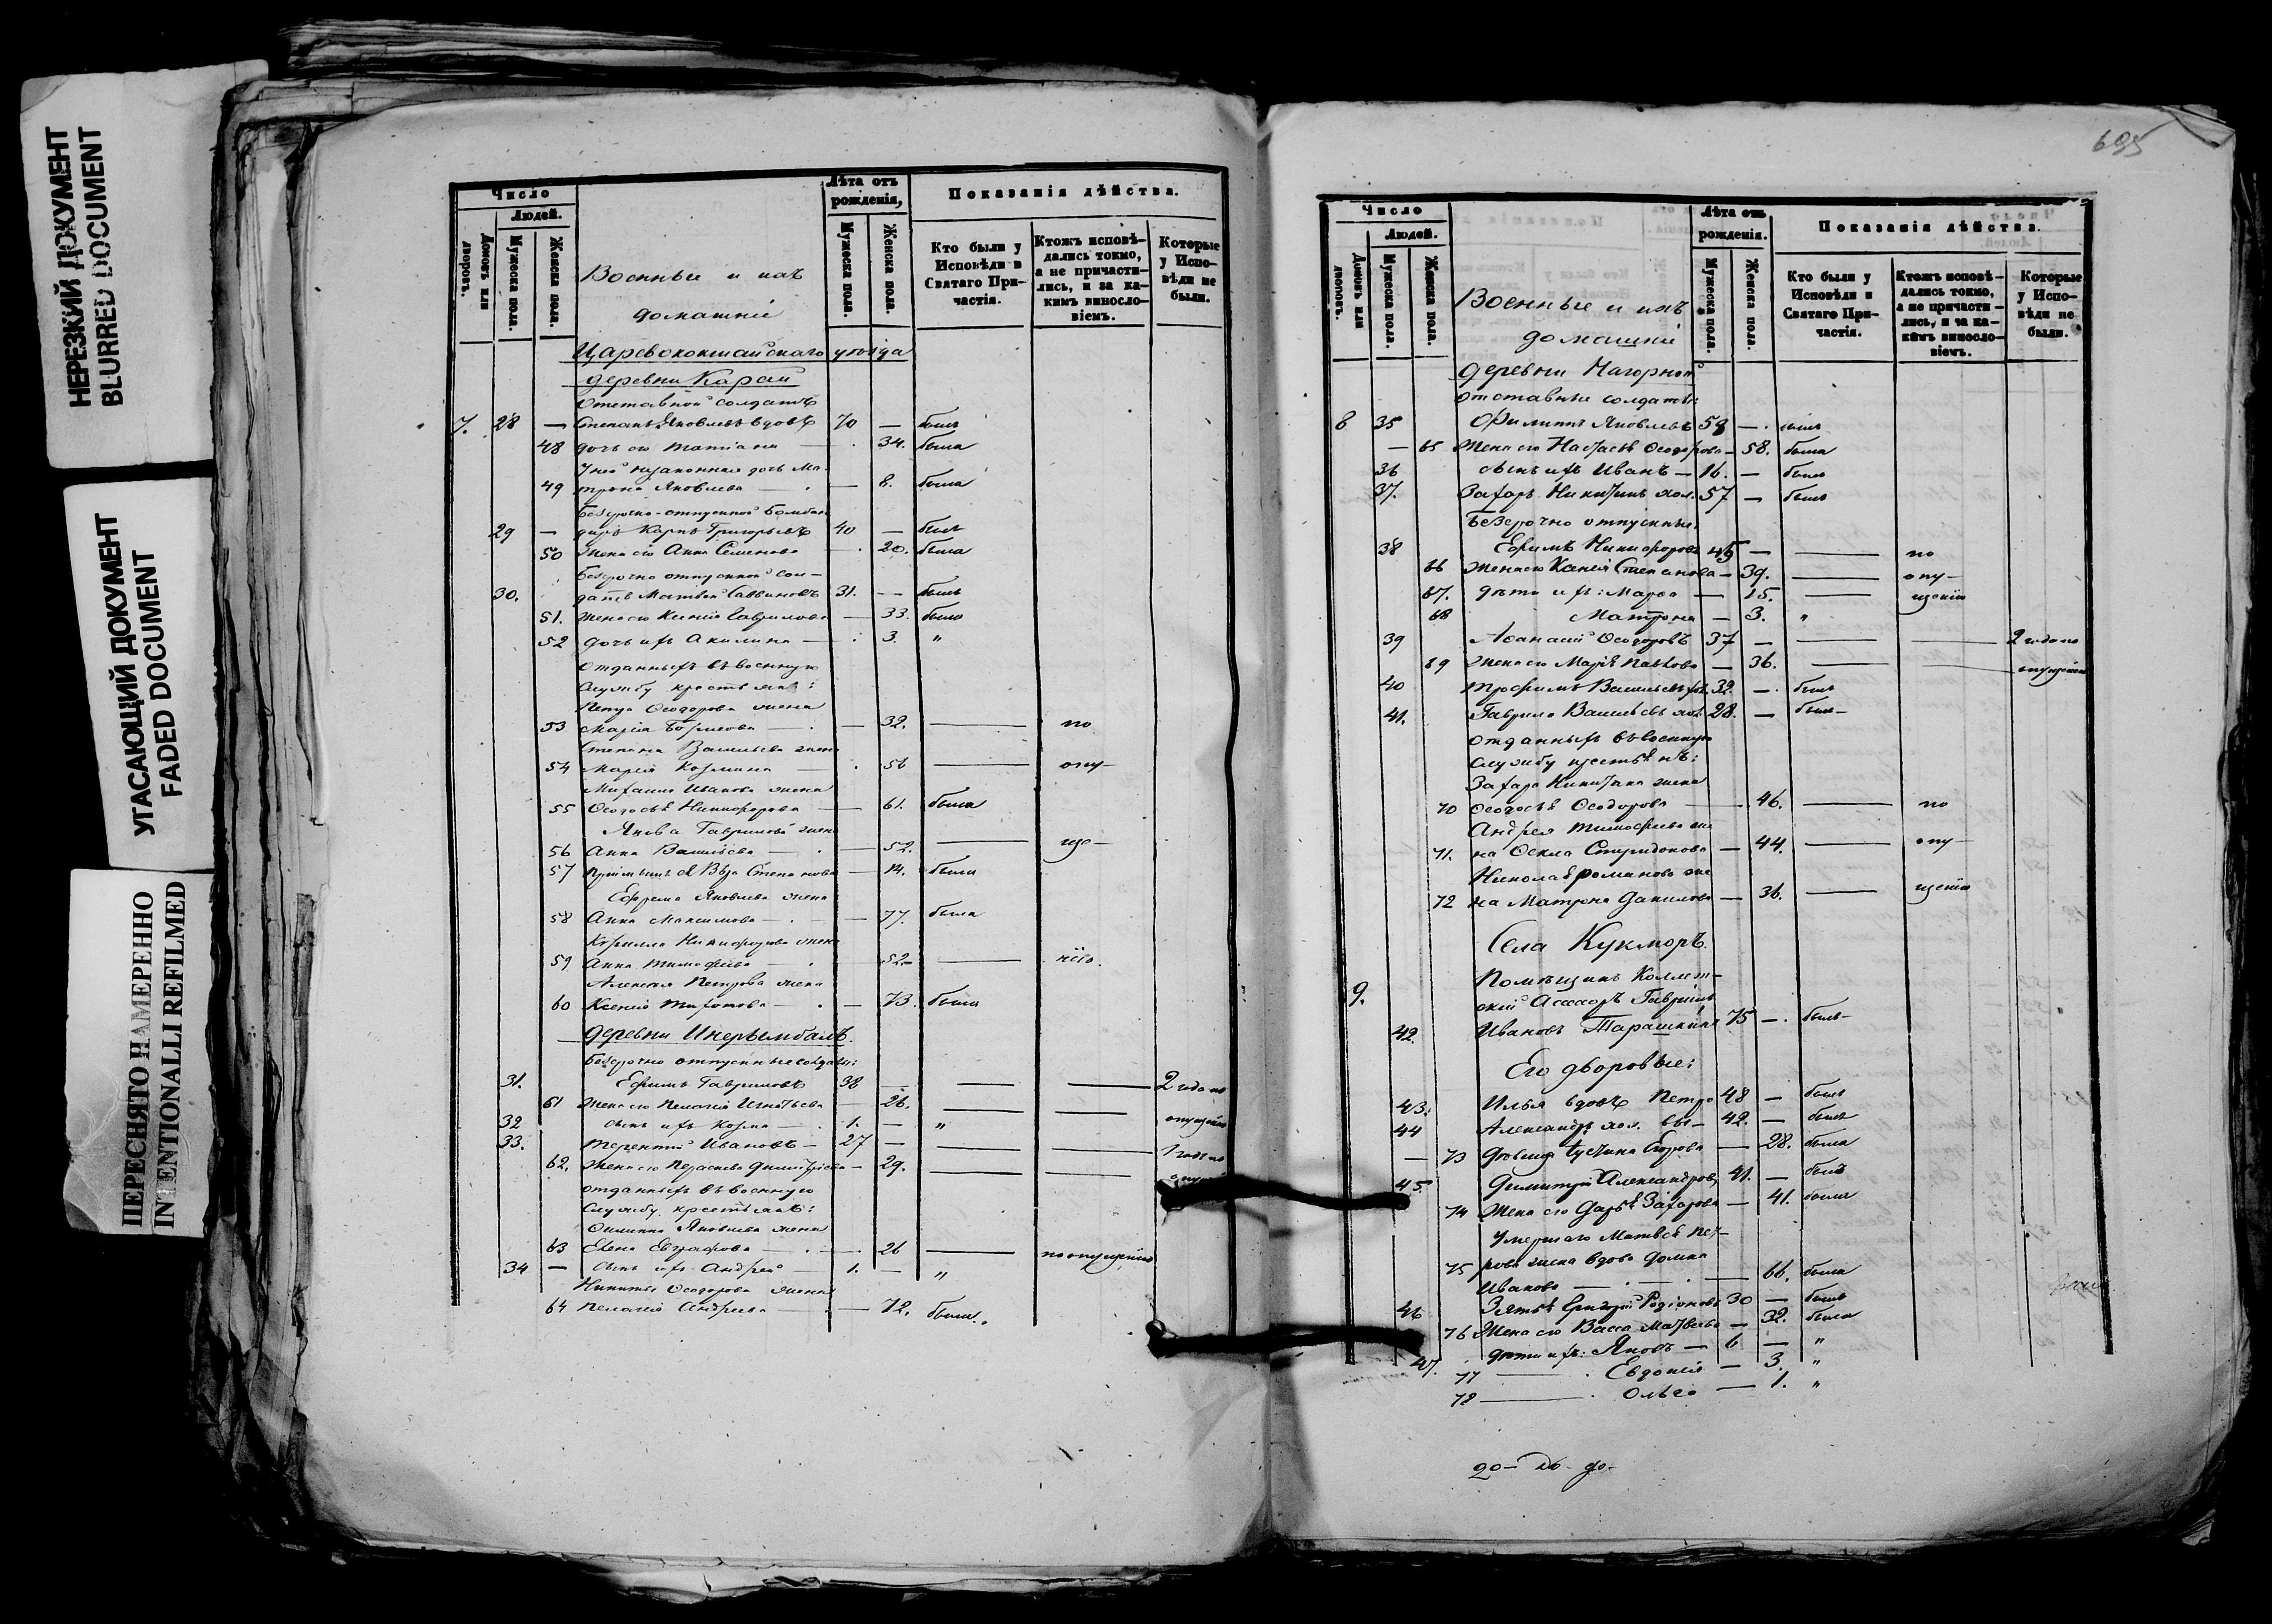 НЕРЕЗКИЙ ДОКУМЕНТ
BLURRED DOCUMENT
УГАСАЮЩИЙ ДОКУМЕНТ
FADED DOCUMENT
ПЕРЕСНЯТО НАМЕРЕННО
INTENTIONALLI REFILMED
Число
Людей.
Домовъ или дворовъ.
Мужеска пола.
Женска пола.
Военные и ихъ
домашніе
Лѣта отъ рожденія,
Мужеска пола.
Женска пола.
Показанія дѣйства.
Кто были у Исповѣди и Святаго Причастія.
Ктожъ исповѣдались токмо, а не причастились, и за какимъ винословіемъ.
Которые у Исповѣди не были.
Царевококшайскаго уѣзда
деревни Карай
Отставной солдатъ
7. 28 — Степанъ Яковлевъ вдовъ 70 — былъ
48 дочь его Татіана — 34. была
У ней незаконная дочь Ма-
49 трона Яковлева — 8. была
Безсрочно-отпускной Бомбан
29 — диръ Карпъ Григорьевъ 40 — былъ
50 Жена его Анна Семенова 20. была
Безсрочно отпускной сол-
30. датъ Матвей Саввиновъ 31. — былъ
51. Жена его Ксенія Гаврилова — 33. была
52 дочь ихъ Акилина — 3 "
Отданныхъ въ военную
службу крестьянъ:
Петра Ѳеодорова жена
53 Марія Борисова — 32. — по
Степана Васильева жена
54 Марія Козмина — 56 — опу-
Михаила Иванова жена
55 Ѳеодосья Никифорова — 61. была
Якова Гаврилова жена
56 Анна Васильева — 52. — ще-
57 Пріемышъ Степанова — 14. была
Ефрема Яковлева жена
58 Анна Максимова — 77. была
Кирилла Никифорова жена
59 Анна Тимофеева — 52. — нію.
Алексея Петрова жена
60 Ксенія Титова — 73. была
деревни
Безсрочно отпускные солдаты:
31. Ефимъ Гавриловъ 38 — — — 2 года по
61 Жена его Пелагія Игнатьева — 26. — — опущенію
32 сынъ ихъ Козма — 1. — "
33. Терентій Ивановъ — 27 — — — 1 годъ по
62. Жена его Параскева Димитріева — 29. — —
отданныхъ въ военную
службу крестьянъ:
Филиппа Яковлева жена
63 Елена Евграфова — 26 — по опущенію
34 — сынъ ихъ Андрей 1. — "
Никиты Ѳеодорова жена
64 Пелагія Андреева — 72. была.
695
Число
Людей.
Домовъ или дворовъ.
Мужеска пола.
Женска пола.
Военные и ихъ
домашніе
Лѣта отъ рожденія.
Мужеска пола.
Женска пола.
Показанія дѣйства.
Кто были у Исповѣди и Святаго Причастія.
Ктожъ исповѣдались токмо, а не причастились, и за какимъ винословіемъ.
Которые у Исповѣди не были.
деревни Нагорной
отставные солдаты:
8 35 Филиппъ Яковлевъ — былъ
— 65 Жена его Настасья Ѳеодорова — 58. была
36 сынъ ихъ Иванъ — 16. — былъ
37. Захаръ Никитинъ хол. 57 — былъ
Безсрочно отпускные:
38 Ефимъ Никифоровъ 45 — — по
66 Жена его Ксенія Степанова — 39. — опу-
67. дѣти ихъ: Марѳа — 15. — щенію
68 Матрона — 3. "
39 Аѳанасій Ѳеодоровъ 37 — — — 2 года по
69 Жена его Марія Павлова — 36. — опущенію
40 Трофимъ Васильевъ хол. 32. — былъ
41. Гаврила Васильевъ хол. 28. — былъ
отданныхъ въ военную
службу крестьянъ:
Захара Никитина жена
70 Ѳеодосья Ѳеодорова — 46. — по
Андрея Тимофеева же
71. на Ѳекла Спиридонова — 44. — опу-
Николая Романова же
72 на Матрона Данилова — 36. — щенію
Села Кукморъ.
Помѣщикъ Коллеж-
9. скій Ассесоръ Гавріилъ
42. Ивановъ Тарашкинъ 75 — былъ
Его дворовые:
43. Илья вдовъ Петро 48 — былъ
44 Александръ хол. 42. — былъ
— 73 дѣвица Устина Егорова — 28. была
45. Димитрій Александровъ 41. — былъ
74 Жена его Дарья Захарова — 41. была
Умершаго Матвея Пет-
75 рова жена вдова Домна
Иванова — 66. была
46 Зять ея Григорій Родіоновъ 30 — былъ
76 Жена его Васса Матвеева — 32. была
47. дѣти ихъ: Яковъ — 6 — "
77 — Евдокія — 3. "
78 — Ольга — 1. "